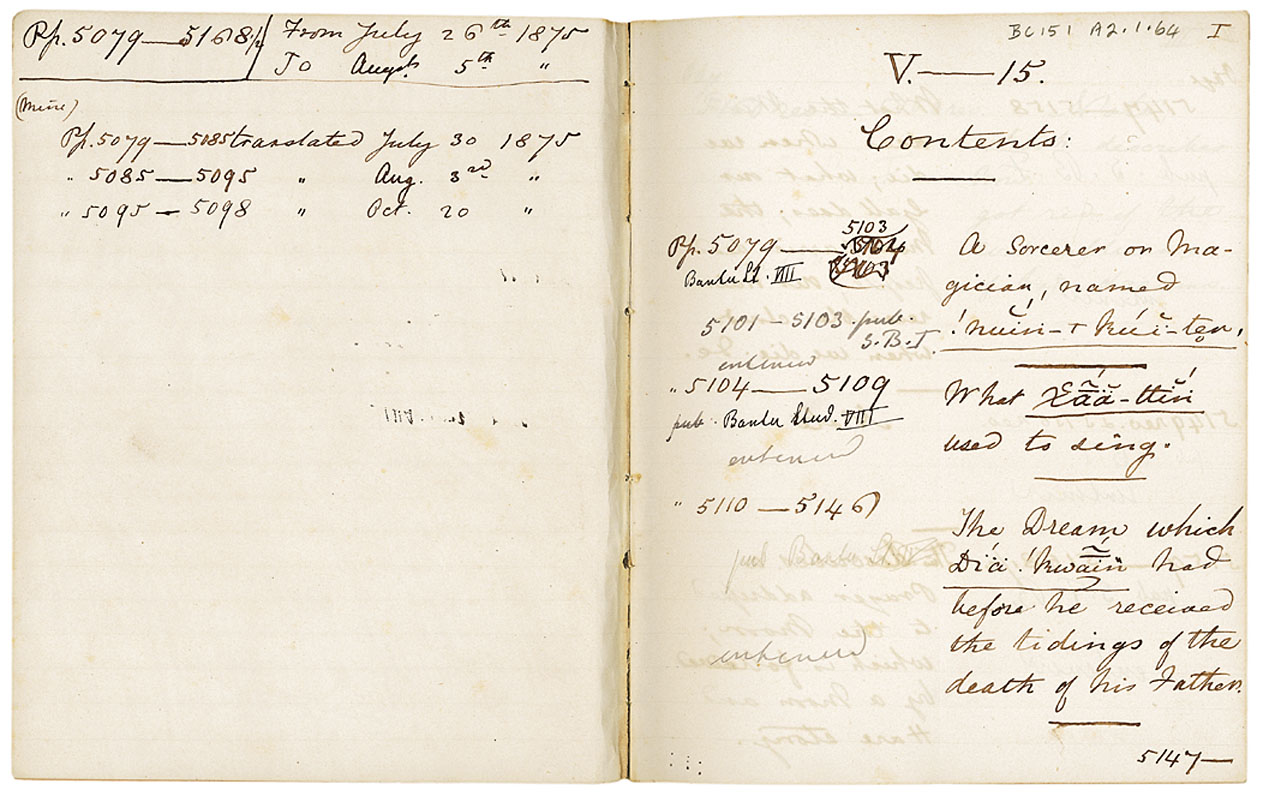 Pp. 5079—5168½ From July 26th 1875
To Augst. 5th "
(Mine)
Pp. 5079—5085 translated July 30 1875
" 5085—5095 " Aug. 3rd "
" 5095—5098 " Oct. 20 "
BC 151 A2.1.64 I
V.—15.
Contents:
5103
Pp. 5079— A Sorcerer or Ma-
Bantu St. VIII gician, named
5101—5103 pub.
S.B.I.
" 5104—5109 What
pub. Bantu Stud. VIII used to sing.
" 5110—5146 The Dream which
Día !kwãin had
pub Bantu
before he received
the tidings of the
death of his Father.
5147—